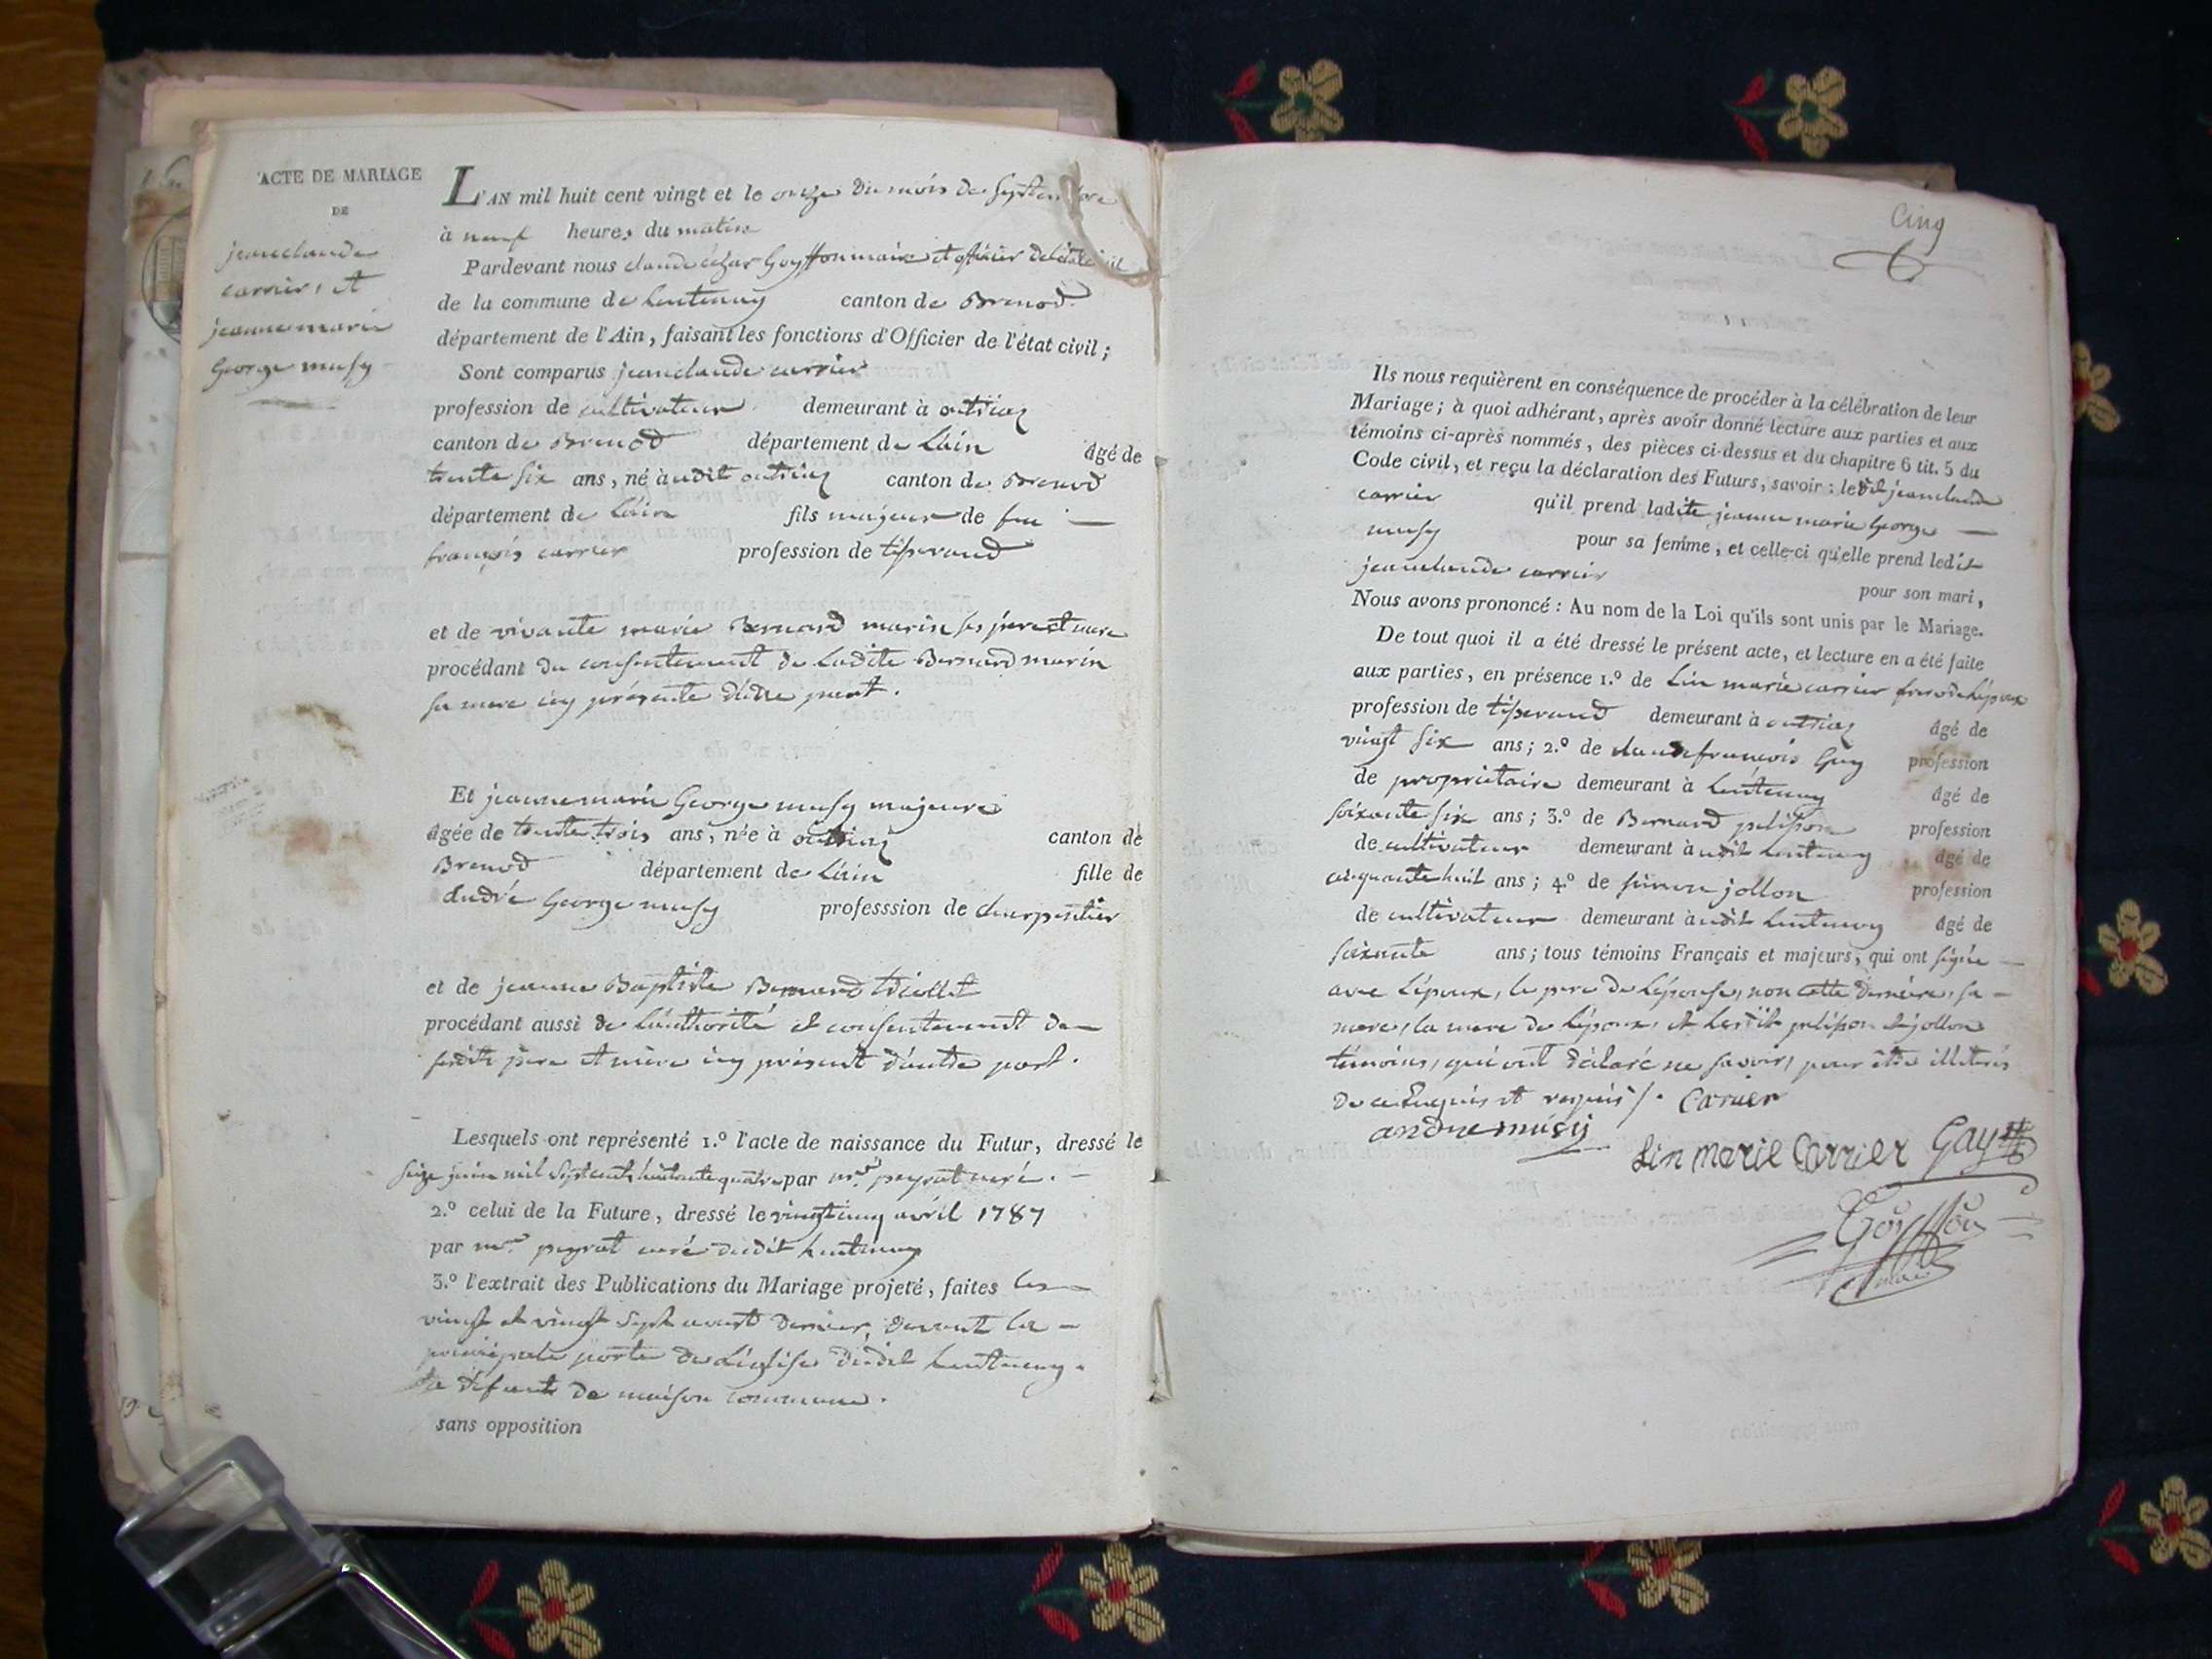 ACTE DE MARIAGE
DE
jean claude
carrier, et
jeanne marie
George musy
L'AN mil huit cent vingt et le onze du mois de septembre
à neuf heures du matin
Pardevant nous claude cézar Goyffon maire et officier de létat civil
de la commune de Lentenay canton de Brenod
département de l'Ain, faisant les fonctions d'Officier de l'état civil;
Sont comparus jean claude carrier
profession de cultivateur demeurant à outriaz
canton de Brenod département de Láin âgé de
trente six ans, né àudit outriaz canton de Brenod
département de Láin fils majeur de feu
françois carrier profession de tisserand
et de vivante marie Bernard marin ses pere et mere
procédant du consentement de Ladite Bernard marin
sa mere icy présente d'autre part.
Et jeanne marie George musy majeure
âgée de trente trois ans, née à outriaz canton de
Brenod département de Láin fille de
André George musy professsion de charpentier
et de jeanne Baptiste Bernard
procédant aussi de láuthorité et consentement de
sesdits pere et mère icy présent d'autre part.
Lesquels ont représenté 1.º l'acte de naissance du Futur, dressé le
seize juin mil sept cent huitante quatre par mr. peyrat curé.
2.º celui de la Future, dressé le vingt cinq avril 1787
par mr. peyrat curé dudit Lentenay
3.º l'extrait des Publications du Mariage projeté, faites les
vingt et vingt sept aoust dernier, devant la
principale porte de Léglise dudit Lentenay
à défaut de maison commune.
sans opposition
Cinq
6
Ils nous requièrent en conséquence de procéder à la célébration de leur
Mariage; à quoi adhérant, après avoir donné lecture aux parties et aux
témoins ci-après nommés, des pièces ci-dessus et du chapitre 6 tit. 5 du
Code civil, et reçu la déclaration des Futurs, savoir: ledit jean claude
carrier qu'il prend ladite jeanne marie George
musy pour sa femme, et celle-ci qu'elle prend ledit
jean claude carrier pour son mari,
Nous avons prononcé: Au nom de la Loi qu'ils sont unis par le Mariage.
De tout quoi il a été dressé le présent acte, et lecture en a été faite
aux parties, en présence 1.º de Lin marie carrier frere de Lépoux
profession de tisserand demeurant à outriaz âgé de
vingt six ans; 2.º de claude françois Guy profession
de propriétaire demeurant à Lentenay âgé de
soixante six ans; 3.º de Bernard pelisson profession
de cultivateur demeurant àudit Lentenay âgé de
cinquante huit ans; 4.º de simon jollon profession
de cultivateur demeurant àudit Lentenay âgé de
soixante ans; tous témoins Français et majeurs, qui ont signé
avec Lépoux, le pere de Lépouse, non cette derniere, sa
mere, la mere de Lépoux, et lesdits pelisson et jollon
témoins, qui ont déclaré ne savoir, pour être illiterés
de ce Enquis et requis. Carrier
andre musy
Lin marie Carrier Gay
Goyffon
maire